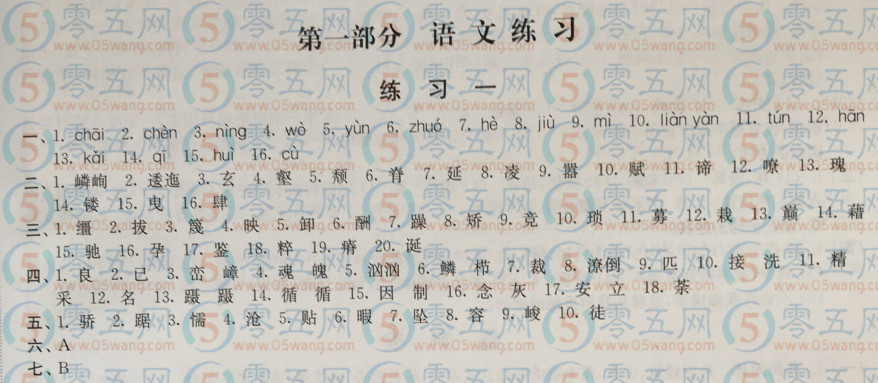 第一部分 语文练习
练 习 一
一、1. chāi 2. chèn 3. nìng 4. wò 5. yùn 6. zhuó 7. hè 8. jiù 9. mì 10. liàn yàn 11. tún 12. hān
13. kǎi 14. qī 15. huì 16. cù
二、1. 嶙峋 2. 逶迤 3. 玄 4. 壑 5. 颓 6. 脊 7. 延 8. 凌 9. 嚣 10. 赋 11. 谛 12. 嘹 13. 瑰
14. 镂 15. 曳 16. 肆
三、1. 缰 2. 拔 3. 篾 4. 映 5. 卸 6. 酬 7. 躁 8. 矫 9. 竞 10. 琐 11. 募 12. 栽 13. 巅 14. 藉
15. 驰 16. 孕 17. 鉴 18. 粹 19. 瘠 20. 诞
四、1. 良 2. 已 3. 峦 嶂 4. 魂 魄 5. 汹汹 6. 鳞 栉 7. 裁 8. 潦倒 9. 匹 10. 接 洗 11. 精
采 12. 名 13. 蹑 蹑 14. 循 循 15. 因 制 16. 念 灰 17. 安 立 18. 荼
五、1. 骄 2. 踞 3. 懦 4. 沧 5. 贴 6. 暇 7. 坠 8. 容 9. 峻 10. 徒
六、A
七、B
零五网
www.05wang.com